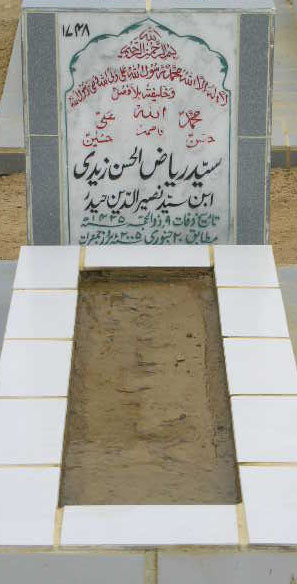 ۱۷۴۸
اللہ
بسم اللہ الرحمن الرحیم
لا الہ الا اللہ محمد رسول اللہ علی ولی اللہ
وخلیفتہ بلا فصل
محمد اللہ علی
حسن فاطمہ حسین
سید ریاض الحسن زیدی
ابن سید نصیر الدین حیدر
تاریخ وفات ۹ ذوالحجہ ۱۴۲۵
مطابق ۲۰ جنوری ۲۰۰۵ بروز جمعرات